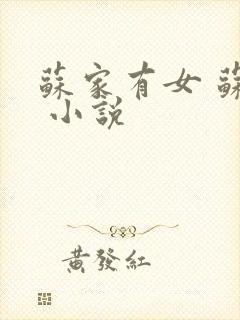 蘇家有女 蘇
小說
黃發紅